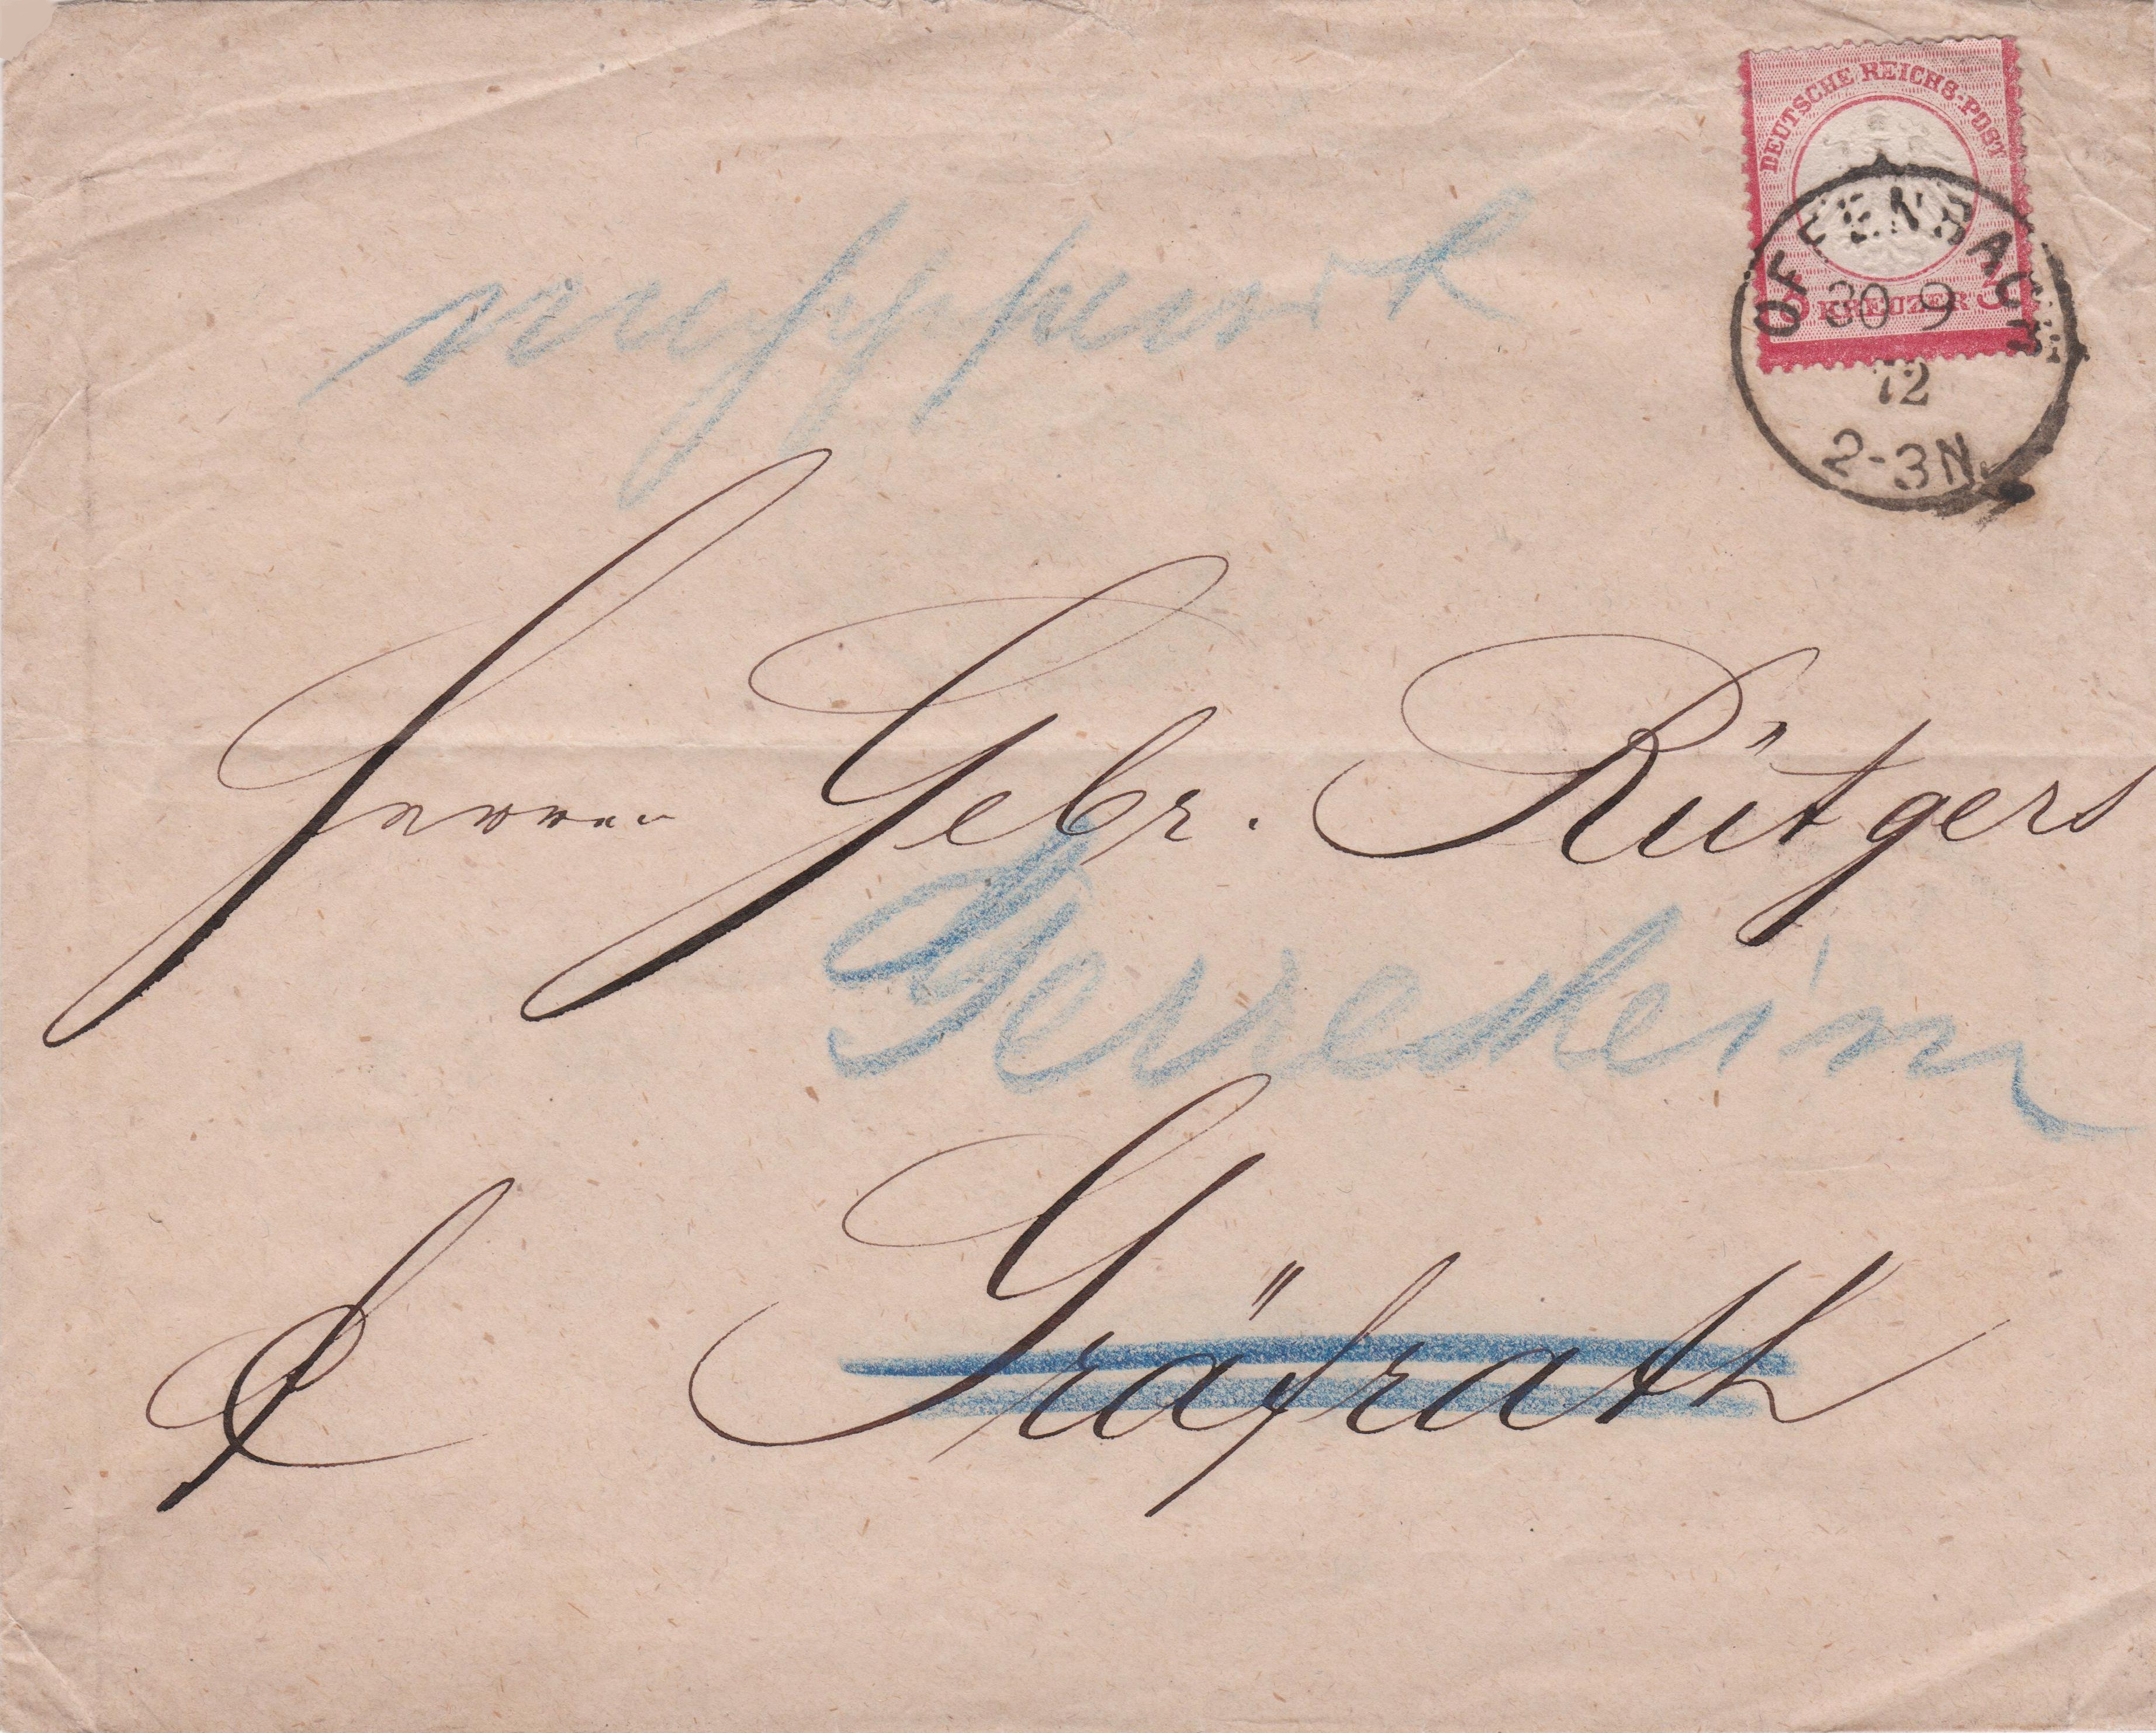 DEUTSCHE REICHS-POST
3 KREUZER 3
OFFENBACH
30 9
72
2-3N.
Herren Gebr. Rütgers
Gerresheim
Gräfrath